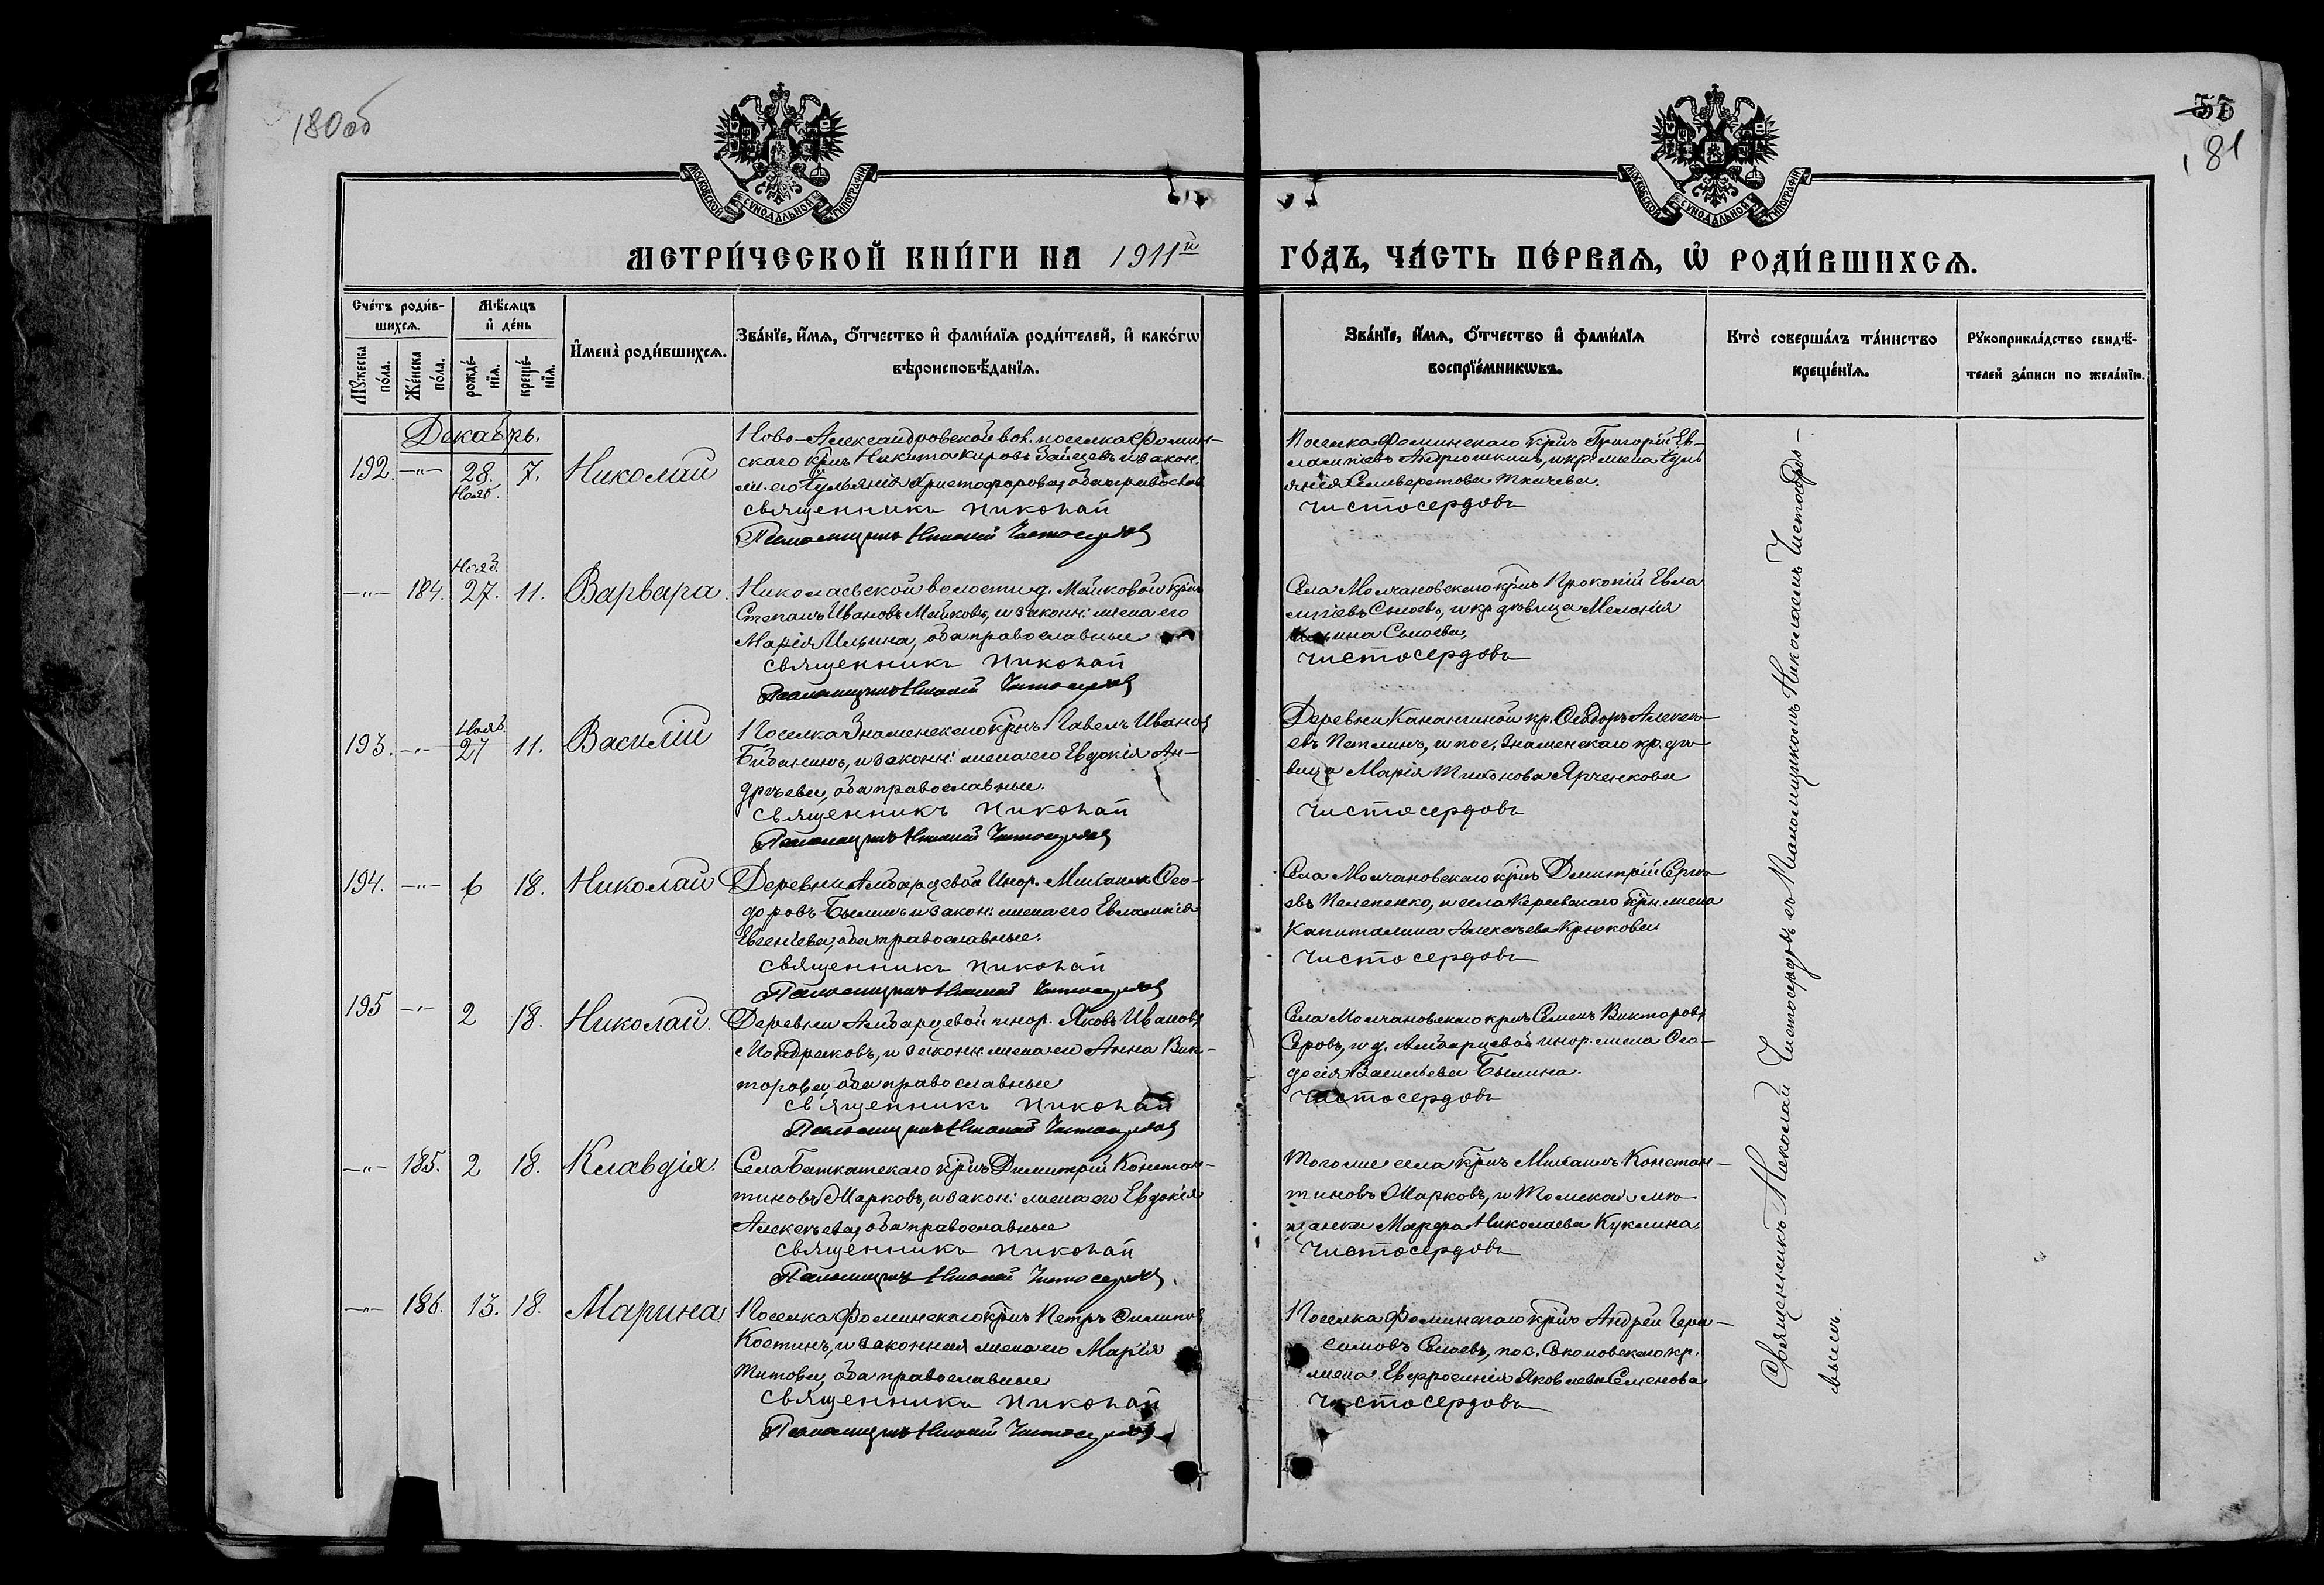 180об
55
181
МОСКОВСКОЙ СУНОДАЛЬНОЙ ТИПОГРАФІИ
МОСКОВСКОЙ СУНОДАЛЬНОЙ ТИПОГРАФІИ
МЕТРИ́ЧЕСКОЙ КНИ́ГИ НА 1911й ГО́ДЪ, ЧА́СТЬ ПЕ́РВАѦ, Ѡ҆ РОДИ́ВШИХСѦ.
Сче́тъ роди́в-
шихсѧ.
Мꙋ́жеска по́ла.
Же́нска по́ла.
Мѣ́сѧцъ
и҆ де́нь
рожде́-
нїѧ.
креще́-
нїѧ.
И҆мена̀ роди́вшихсѧ.
Зва́нїе, и҆́мѧ, ѻ҆́тчество и҆ фами́лїѧ роди́телей, и҆ како́гѡ
вѣроисповѣ́данїѧ.
Зва́нїе, и҆́мѧ, ѻ҆́тчество и҆ фами́лїѧ
воспрїе́мникѡвъ.
Кто̀ соверша́лъ та́инство
креще́нїѧ.
Рꙋкоприкла́дство свидѣ́-
телей за́писи по жела́нїю.
Декабрь.
192. —"— 28. Нояб. 7. Николай
Ново-Александровской вол. поселка Фомин-
скаго кр̃нъ Никита Кировъ Зайцевъ и закон.
ж. его Ульянія Христофорова, оба православ
священникъ Николай
Псаломщикъ Николай Чистосердовъ
Поселка Фоминскаго кр̃нъ Григорій Ев-
лампіевъ Андрюшкинъ, и кр. жена Уль
янія Селиверстова Ткачева.
Чистосердовъ
—"— 184. Нояб. 27. 11. Варвара.
Николаевской волости д. Мѣйковой кр̃нъ
Степанъ Ивановъ Мѣйковъ, и законн: жена его
Марія Ильина, оба православные
священникъ Николай
Псаломщикъ Николай Чистосердовъ
Села Молчановскаго кр̃нъ Прокопій Евла
мпіевъ Сысоевъ, и кр. дѣвица Меланія
Сысоева,
Чистосердовъ
193. —"— Нояб. 27 11. Василій
Поселка Знаменскаго кр̃нъ Павелъ Иванов
Бибанинъ, и законн: жена его Евдокія Ан-
дрѣева, оба православные.
священникъ Николай
Псаломщикъ Николай Чистосердовъ
Деревни Канангиной кр. Ѳеодоръ Алексѣ-
евъ Петлинъ, и пос. Знаменскаго кр. дѣ-
вица Марія Тихонова Ярченкова
Чистосердовъ
194. —"— 6 18. Николай
Деревни Амбарцевой Инор. Михаилъ Ѳео-
доровъ Былинъ и закон: жена его Евлампія
Евгеніева, оба православные.
священникъ Николай
Псаломщикъ Николай Чистосердовъ
Села Молчановскаго кр̃нъ Димитрій Сергѣ-
евъ Пелепенко, и села Кереевскаго кр̃н. жена
Капиталина Алексѣева Крюкова
Чистосердовъ
195 —"— 2 18. Николай.
Деревни Амбарцевой инор. Яковъ Ивановъ
Мондраковъ, и законн: жена его Анна Вик-
торова, оба православные
священникъ Николай
Псаломщикъ Николай Чистосердовъ
Села Молчановскаго кр̃нъ Семенъ Викторовъ
Серовъ, и д. Амбарцевой инор. жена Ѳео-
досія Васильева Былина.
Чистосердовъ
—"— 185. 2 18. Клавдія.
Села Баткатскаго кр̃нъ Димитрій Констан-
тиновъ Марковъ, и закон: жена его Евдокія
Алексѣева, оба православные
священникъ Николай
Псаломщикъ Николай Чистосердовъ.
Тогоже села кр̃нъ Михаилъ Констан-
тиновъ Марковъ, и Томская мѣ-
щанка Марфа Николаева Куклина.
Чистосердовъ
—"— 186. 13. 18. Марина
Поселка Фоминскаго кр̃нъ Петръ Филипов
Костинъ, и законная жена его Марія
Титова, оба православные
священникъ Николай
Псаломщикъ Николай Чистосердовъ
Поселка Фоминскаго кр̃нъ Андрей Гера-
симовъ Сысоевъ, пос. Соколовскаго кр.
жена Евфросинія Яковлева Семенова
Чистосердовъ
Священникъ Николай Чистосердовъ съ Псаломщикомъ Николаемъ Чистосердо-
вымъ.